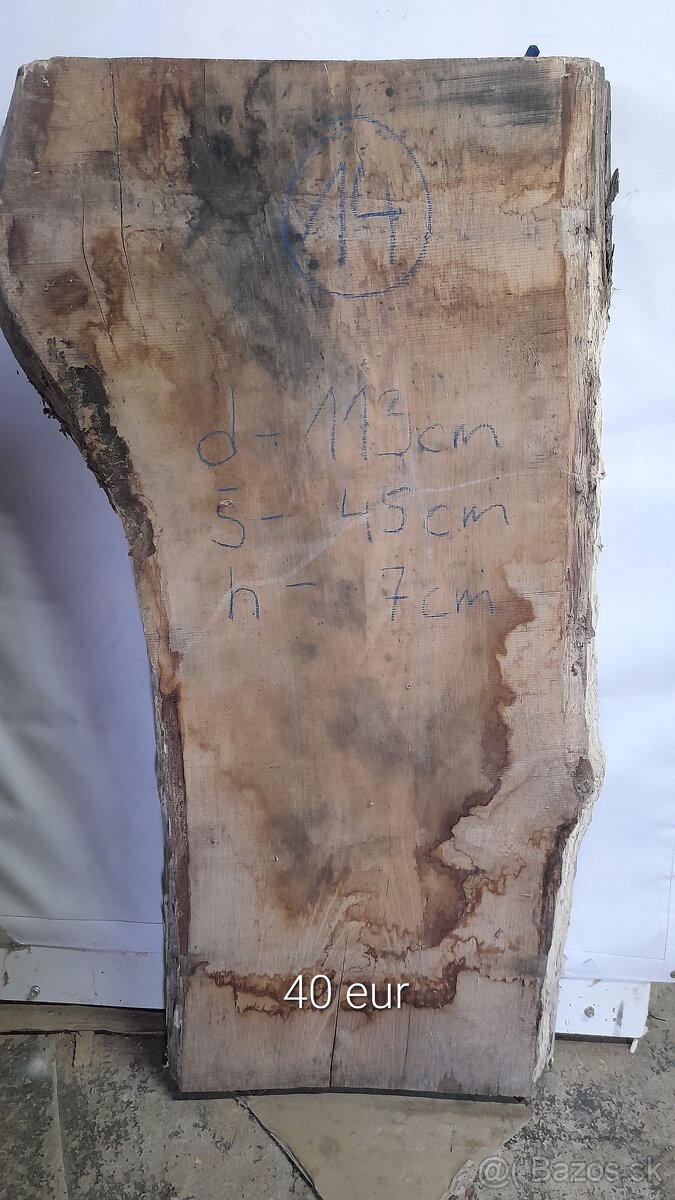 14
d - 113cm
š - 45cm
h - 7cm
40 eur
@ Bazos.sk